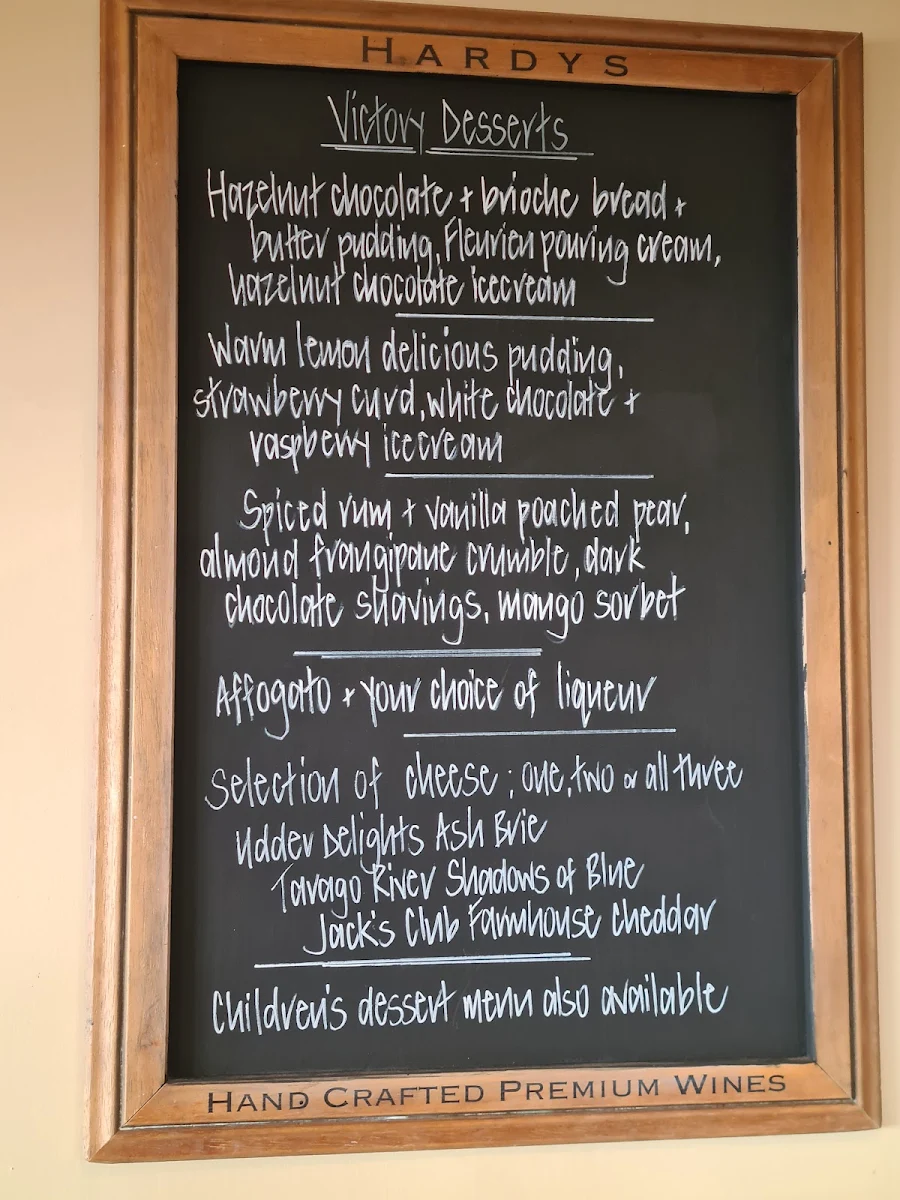 HARDYS
Victory Desserts
Hazelnut chocolate + brioche bread +
butter pudding, Fleurien pouring cream,
hazelnut chocolate icecream
Warm lemon delicious pudding,
strawberry curd, white chocolate +
raspberry icecream
Spiced rum + vanilla poached pear,
almond frangipane crumble, dark
chocolate shavings, mango sorbet
Affogato + your choice of liqueur
Selection of cheese ; one, two or all three
Udder Delights Ash Brie
Tarago River Shadows of Blue
Jack's Club Farmhouse Cheddar
Children's dessert menu also available
HAND CRAFTED PREMIUM WINES